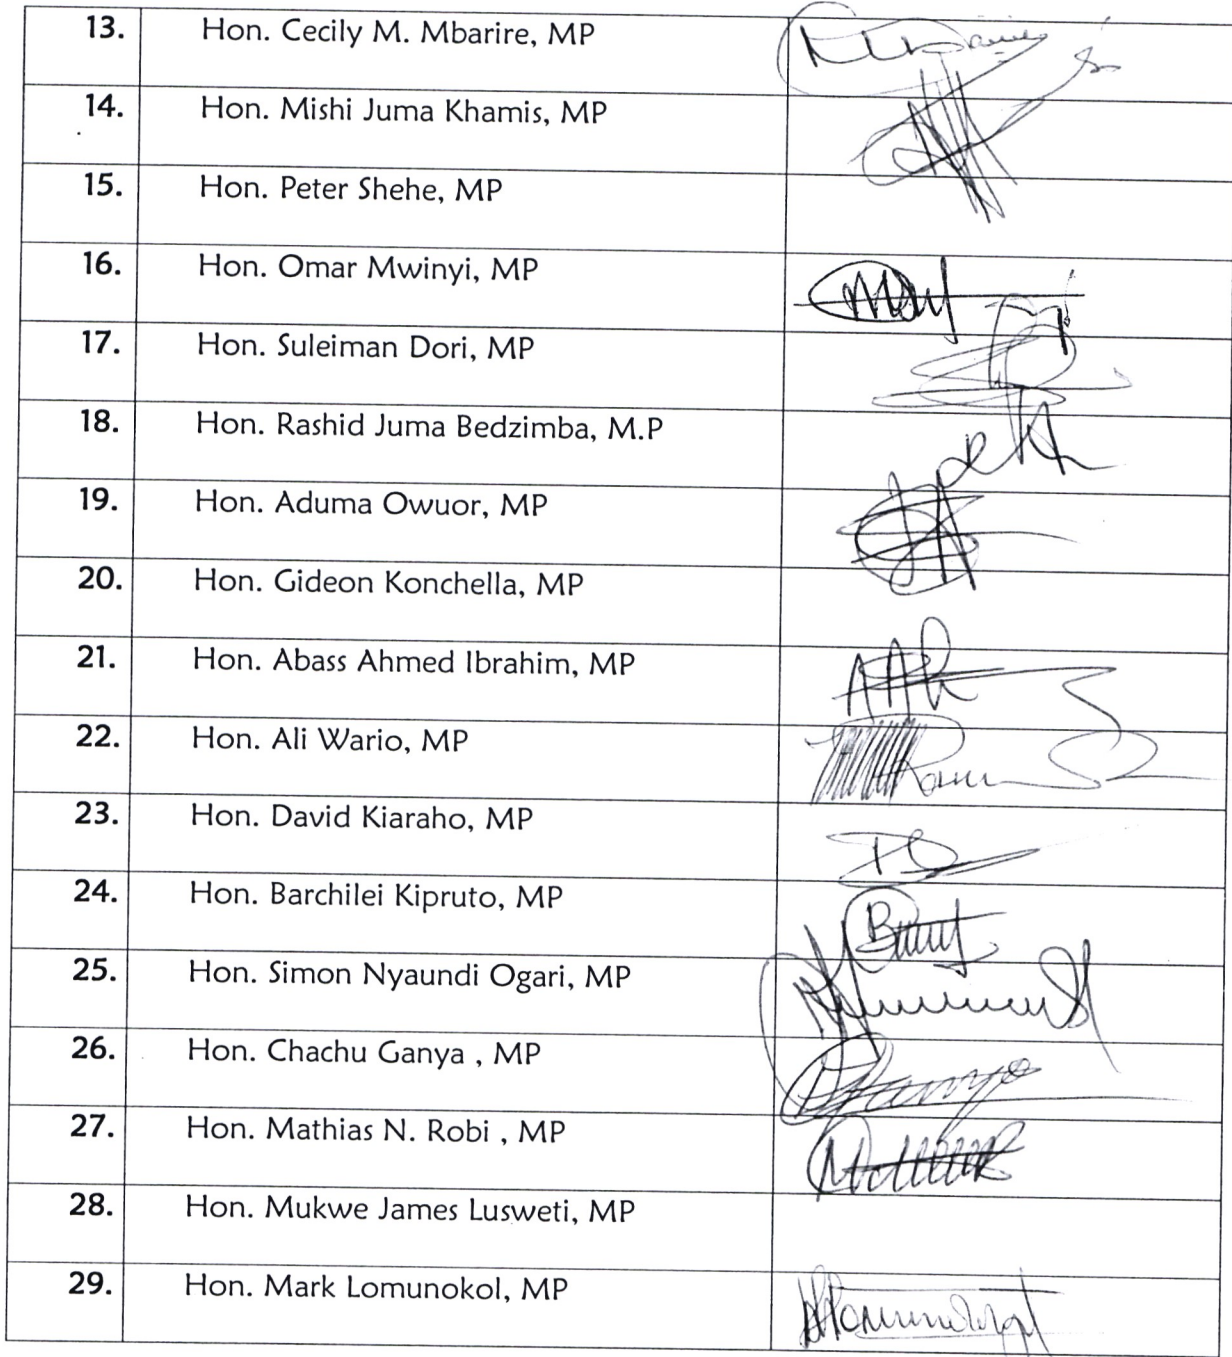 13. Hon. Cecily M. Mbarire, MP
14. Hon. Mishi Juma Khamis, MP
15. Hon. Peter Shehe, MP
16. Hon. Omar Mwinyi, MP
17. Hon. Suleiman Dori, MP
18. Hon. Rashid Juma Bedzimba, M.P
19. Hon. Aduma Owuor, MP
20. Hon. Gideon Konchella, MP
21. Hon. Abass Ahmed Ibrahim, MP
22. Hon. Ali Wario, MP
23. Hon. David Kiaraho, MP
24. Hon. Barchilei Kipruto, MP
25. Hon. Simon Nyaundi Ogari, MP
26. Hon. Chachu Ganya , MP
27. Hon. Mathias N. Robi , MP
28. Hon. Mukwe James Lusweti, MP
29. Hon. Mark Lomunokol, MP